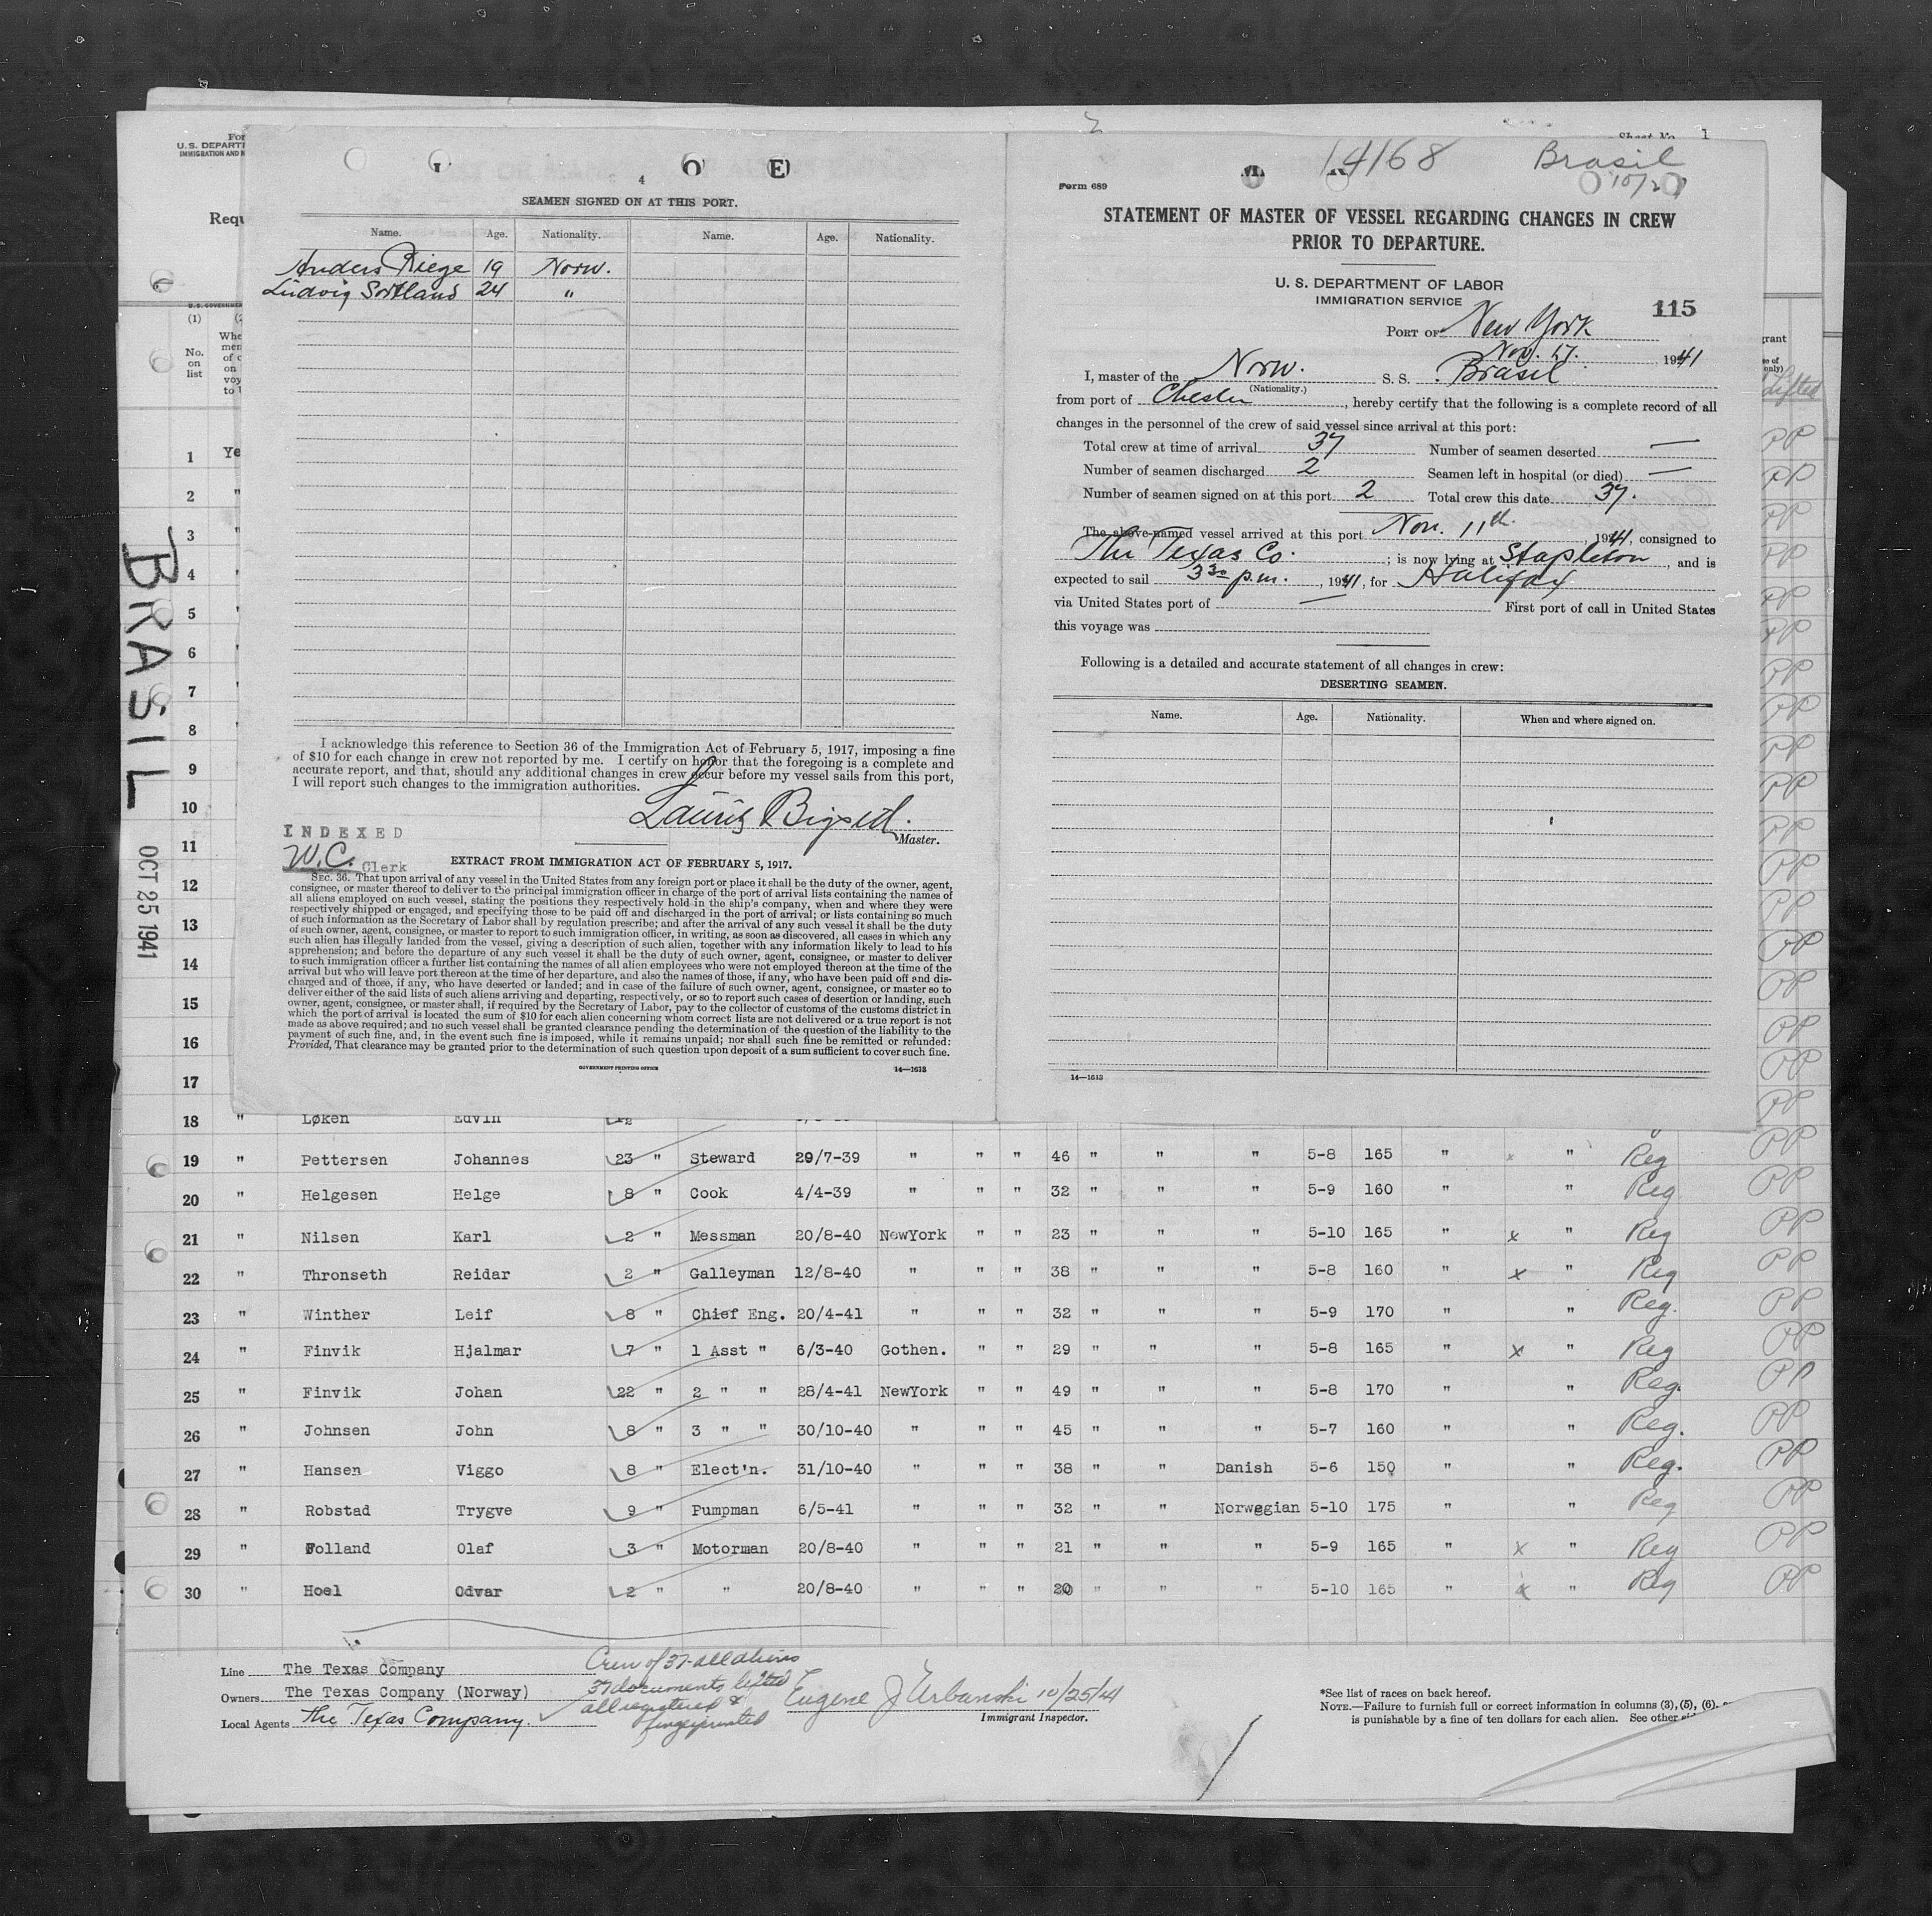 For
U. S. DEPARTM
IMMIGRATION AND N
Requ
BRASIL
OCT 25 1941
(1)
No.
on
list
O E
4
SEAMEN SIGNED ON AT THIS PORT.
Name. Age. Nationality. Name. Age. Nationality.
Anders Riege 19 Norw.
Ludvig Sortland 24 "
I acknowledge this reference to Section 36 of the Immigration Act of February 5, 1917, imposing a fine
of $10 for each change in crew not reported by me. I certify on honor that the foregoing is a complete and
accurate report, and that, should any additional changes in crew occur before my vessel sails from this port,
I will report such changes to the immigration authorities.
Master.
INDEXED
W.C. Clerk
EXTRACT FROM IMMIGRATION ACT OF FEBRUARY 5, 1917.
SEC. 36. That upon arrival of any vessel in the United States from any foreign port or place it shall be the duty of the owner, agent,
consignee, or master thereof to deliver to the principal immigration officer in charge of the port of arrival lists containing the names of
all aliens employed on such vessel, stating the positions they respectively hold in the ship's company, when and where they were
respectively shipped or engaged, and specifying those to be paid off and discharged in the port of arrival; or lists containing so much
of such information as the Secretary of Labor shall by regulation prescribe; and after the arrival of any such vessel it shall be the duty
of such owner, agent, consignee, or master to report to such immigration officer, in writing, as soon as discovered, all cases in which any
such alien has illegally landed from the vessel, giving a description of such alien, together with any information likely to lead to his
apprehension; and before the departure of any such vessel it shall be the duty of such owner, agent, consignee, or master to deliver
to such immigration officer a further list containing the names of all alien employees who were not employed thereon at the time of the
arrival but who will leave port thereon at the time of her departure, and also the names of those, if any, who have been paid off and dis-
charged and of those, if any, who have deserted or landed; and in case of the failure of such owner, agent, consignee, or master so to
deliver either of the said lists of such aliens arriving and departing, respectively, or so to report such cases of desertion or landing, such
owner, agent, consignee, or master shall, if required by the Secretary of Labor, pay to the collector of customs of the customs district in
which the port of arrival is located the sum of $10 for each alien concerning whom correct lists are not delivered or a true report is not
made as above required; and no such vessel shall be granted clearance pending the determination of the question of the liability to the
payment of such fine, and, in the event such fine is imposed, while it remains unpaid; nor shall such fine be remitted or refunded:
Provided, That clearance may be granted prior to the determination of such question upon deposit of a sum sufficient to cover such fine.
GOVERNMENT PRINTING OFFICE 14—1613
14168 Brasil
Form 689
STATEMENT OF MASTER OF VESSEL REGARDING CHANGES IN CREW
PRIOR TO DEPARTURE.
U. S. DEPARTMENT OF LABOR
IMMIGRATION SERVICE
115
PORT OF New York
Nov. 17. 1941
I, master of the Norw. S. S. Brasil
(Nationality.)
from port of Chester, hereby certify that the following is a complete record of all
changes in the personnel of the crew of said vessel since arrival at this port:
Total crew at time of arrival 37 Number of seamen deserted —
Number of seamen discharged 2 Seamen left in hospital (or died) —
Number of seamen signed on at this port 2 Total crew this date 37.
The above-named vessel arrived at this port Nov. 11th. , 1941, consigned to
The Texas Co. ; is now lying at Stapleton, and is
expected to sail 3 30 p.m. , 1941, for Halifax
via United States port of — First port of call in United States
this voyage was
Following is a detailed and accurate statement of all changes in crew:
DESERTING SEAMEN.
Name. Age. Nationality. When and where signed on.
14—1613
1 Ye
2 "
3
4
5
6
7
8
9
10
11
12
13
14
15
16
17
18 " Løken Edvin
19 " Pettersen Johannes 23 " Steward 29/7-39 " " " 46 " " " 5-8 165 " x " Reg PP
20 " Helgesen Helge 8 " Cook 4/4-39 " " " 32 " " " 5-9 160 " " Reg PP
21 " Nilsen Karl 2 " Messman 20/8-40 NewYork " " 23 " " " 5-10 165 " x " Reg PP
22 " Thronseth Reidar 2 " Galleyman 12/8-40 " " " 38 " " " 5-8 160 " x " Reg PP
23 " Winther Leif 8 " Chief Eng. 20/4-41 " " " 32 " " " 5-9 170 " " Reg. PP
24 " Finvik Hjalmar 7 " 1 Asst " 6/3-40 Gothen. " " 29 " " " 5-8 165 " x " Reg PP
25 " Finvik Johan 22 " 2 " " 28/4-41 NewYork " " 49 " " " 5-8 170 " " Reg. PP
26 " Johnsen John 8 " 3 " " 30/10-40 " " " 45 " " " 5-7 160 " " Reg. PP
27 " Hansen Viggo 8 " Elect'n. 31/10-40 " " " 38 " " Danish 5-6 150 " " Reg. PP
28 " Robstad Trygve 9 " Pumpman 6/5-41 " " " 32 " " Norwegian 5-10 175 " " Reg PP
29 " Folland Olaf 3 " Motorman 20/8-40 " " " 21 " " " 5-9 165 " x " Reg PP
30 " Hoel Odvar 2 " " 20/8-40 " " " 20 " " " 5-10 165 " x " Reg PP
Line The Texas Company
Owners The Texas Company (Norway)
Local Agents The Texas Company.
Crew of 37 - all aliens
37 documents lifted
all registered &
fingerprinted
Eugene J Urbanski 10/25/41
Immigrant Inspector.
*See list of races on back hereof.
NOTE.—Failure to furnish full or correct information in columns (3), (5), (6).
is punishable by a fine of ten dollars for each alien. See other